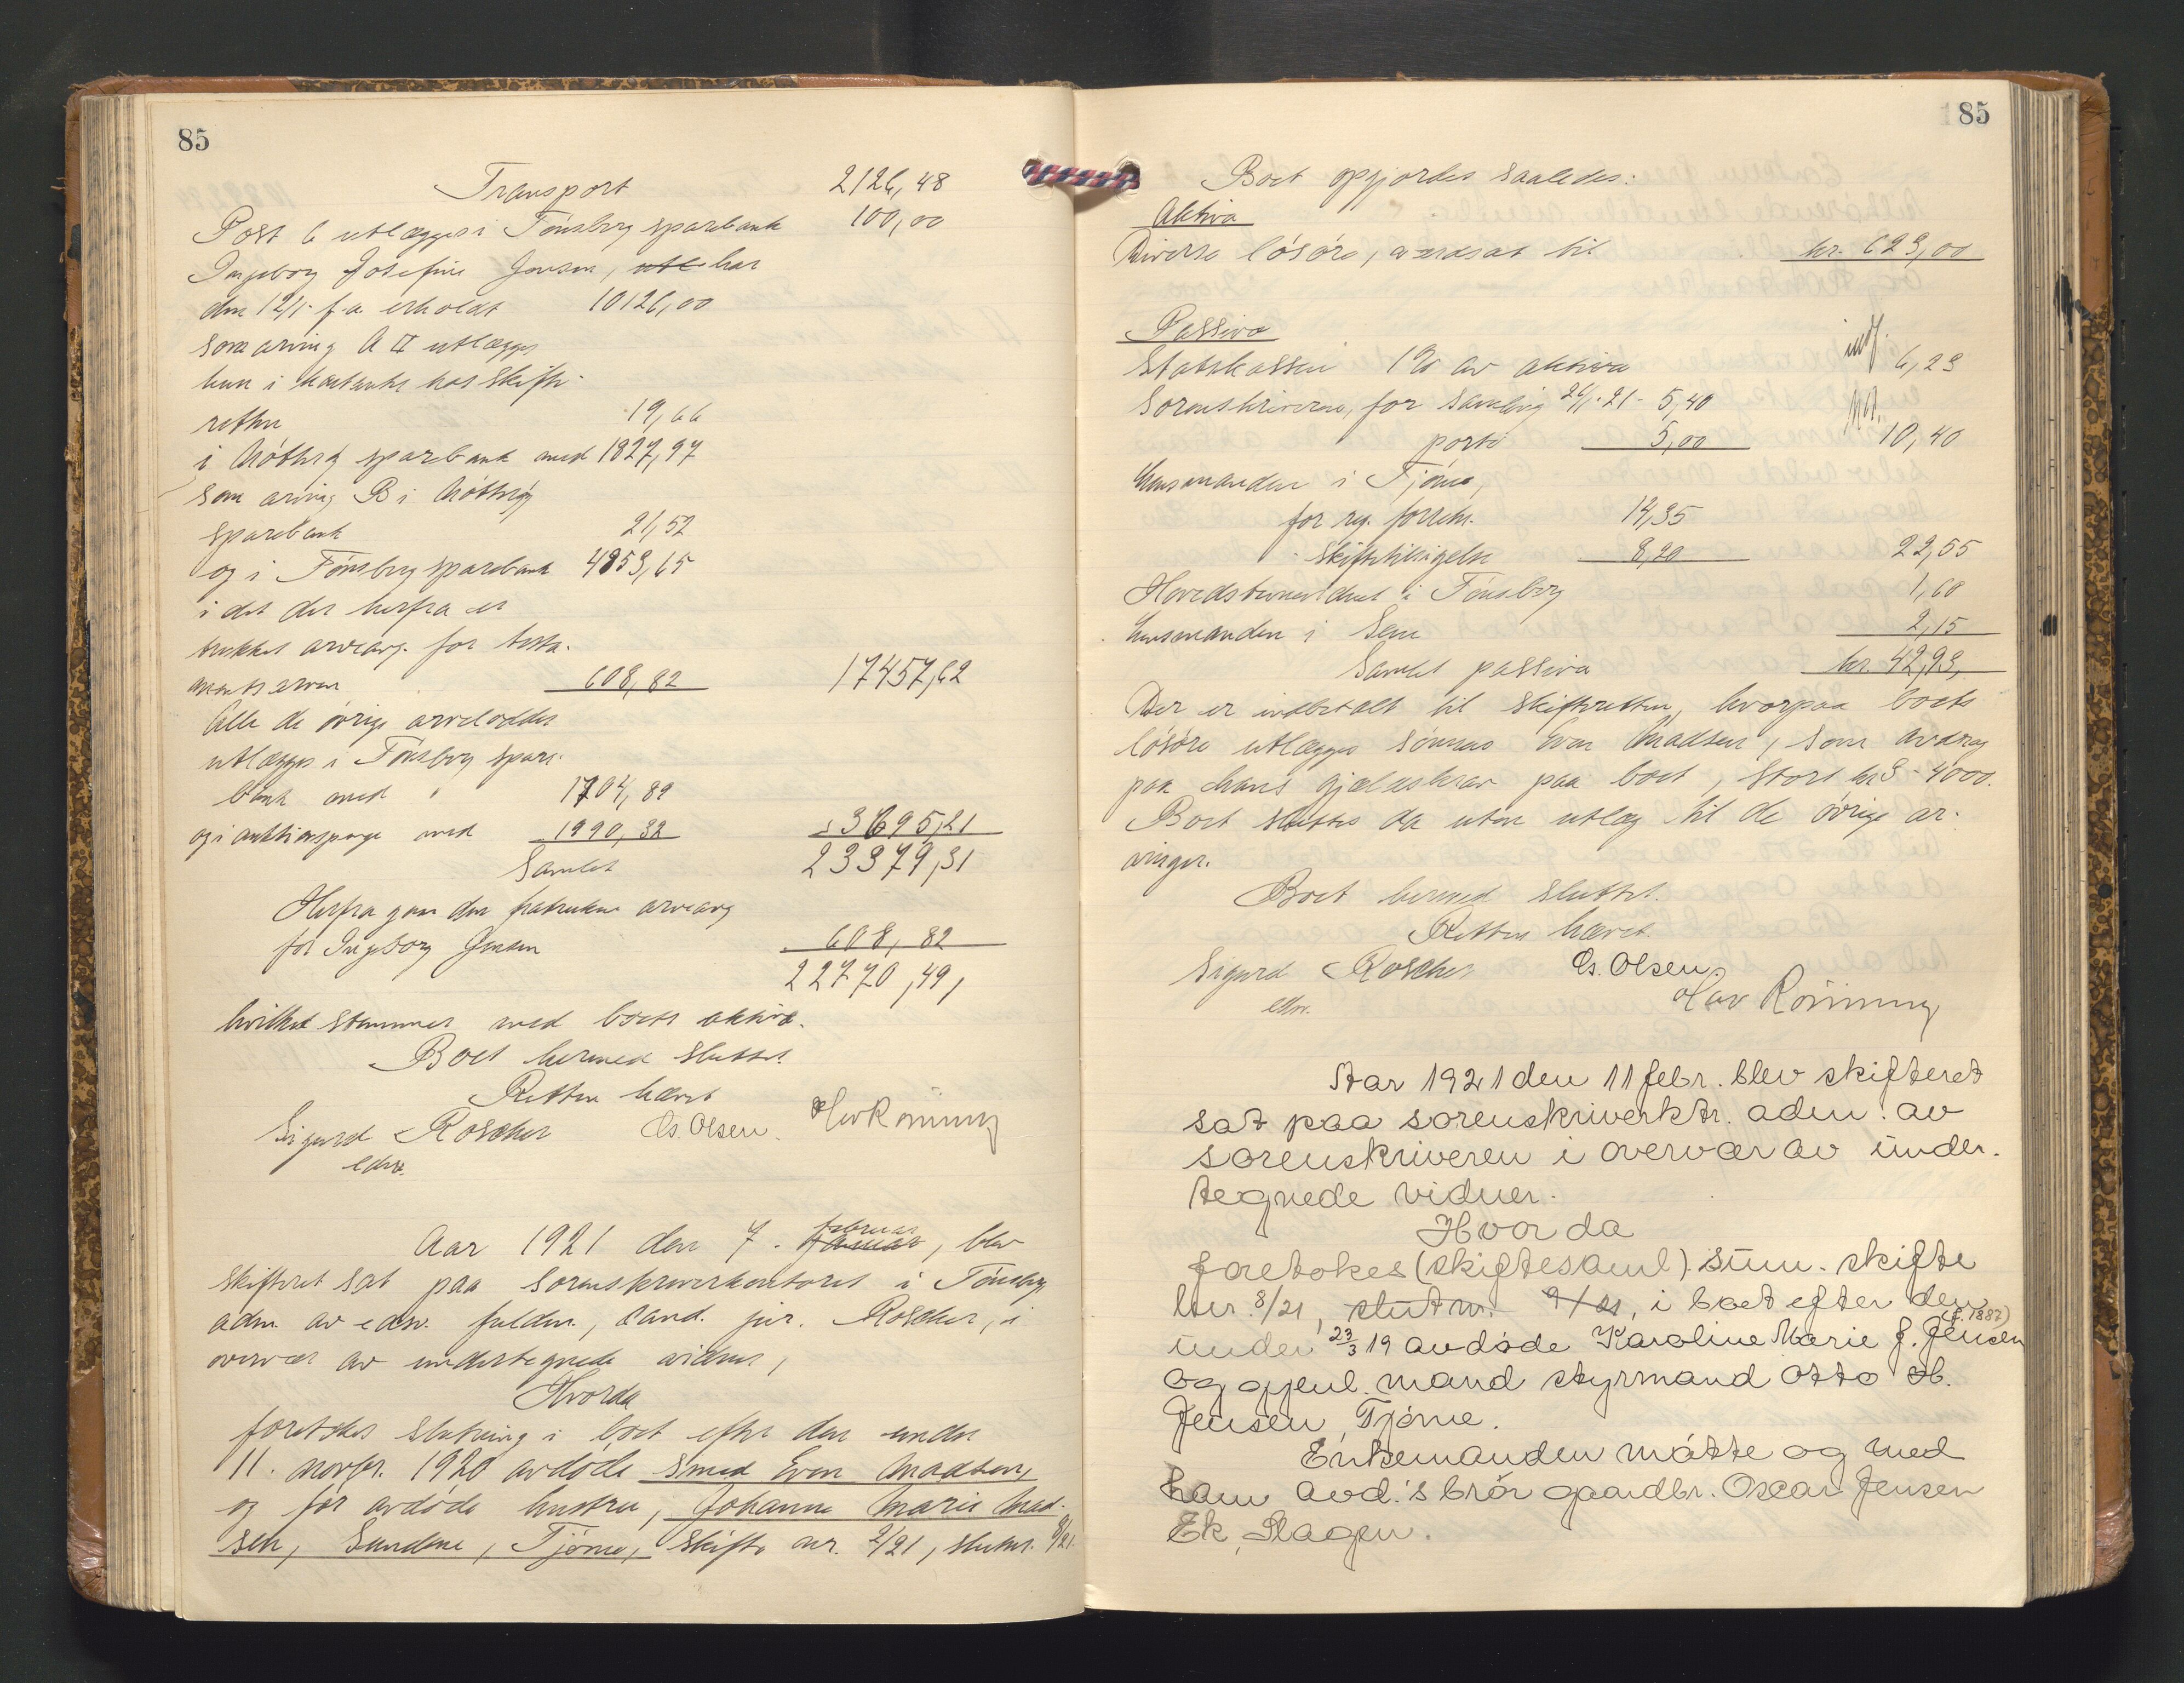 85
Transport 2126,48
Post 6 utlægges i Tönsberg sparebank 100,00
Ingeborg Josefine Jensen, utl har
den 12/1- f.a. erholdt 10126,00
som arving A II utlægges
hun i kontanter hos skifte-
retten 19,66
i Nötterö sparebank med 1827,97
som arving B i Nötterö
sparebank 21,52
og i Tönsberg sparebank 4853,65
i det der herfra er
trukket arveavg. for testa-
mentsarven 608,82 17457,62
Alle de övrige arvelodder
utlægges i Tönsberg spare-
bank med 1704,89
og i auktionspenge med 1990,32 3695,21
Samlet 23379,31
Herfra gaar den fratrukne arveavg
for Ingeborg Jensen 608,82
22770,49,
hvilket stemmer med boets aktiva.
Boet hermed sluttet.
Retten hævet
Sigurd Roscher Cs. Olsen. Olav Rönning
edsv.
Aar 1921 den 7. januar februar, blev
skifteret sat paa sorenskriverkontoret i Tönsberg
adm. av edsv. fuldm., cand. jur. Roscher, i
overvær av undertegnede vidner,
Hvorda
foretokes slutning i boet efter den under
11. novbr. 1920 avdöde smed Even Madsen,
og för avdöde hustru, Johanne Marie Mad-
sen, Sundene, Tjöme, skifte nr. 2/21, slutnr. 8/21.
185
Boet opgjordes saaledes:
Aktiva
Diverse lösöre, værdsat til kr. 623,00
Passiva
Statskassen 1% av aktiva 6,23
Sorenskriveren, for samling 26/1-21- 5,40
porto 5,00 10,40
Lensmanden i Tjöme,
for reg. forretn. 14,35
- skiftetilsigelse 8,20 22,55
Hovedstevnevidnet i Tönsberg 1,60
Lensmanden i Sem 2,15
Samlet passiva kr. 42,93,
Der er indbetalt til skifteretten, hvorpaa boets
lösöre utlægges sönnen Even Madsen, som avdrag
paa hans gjældskrav paa boet, stort kr 3-4000.
Boet sluttes da uten utlæg til de övrige ar-
vinger.
Boet hermed sluttet.
Retten hævet.
Sigurd Roscher Cs. Olsen.
edsv. Olav Rönning
Aar 1921 den 11 febr. blev skifteret
sat paa sorenskriverktr. adm. av
sorenskriveren i overvær av under-
tegnede vidner.
Hvor da
foretokes (skiftesaml). sum. skifte
lnr. 8/21, slutnr. 9/21, i boet efter den
under 23/3 19 avdöde Karoline Marie J. Jensen (f. 1882)
og gjenl. mand styrmand Otto H.
Jensen, Tjöme.
Enkemanden mötte og med
ham avd.'s bror gaardbr. Oscar Jensen
Ek, Slagen.